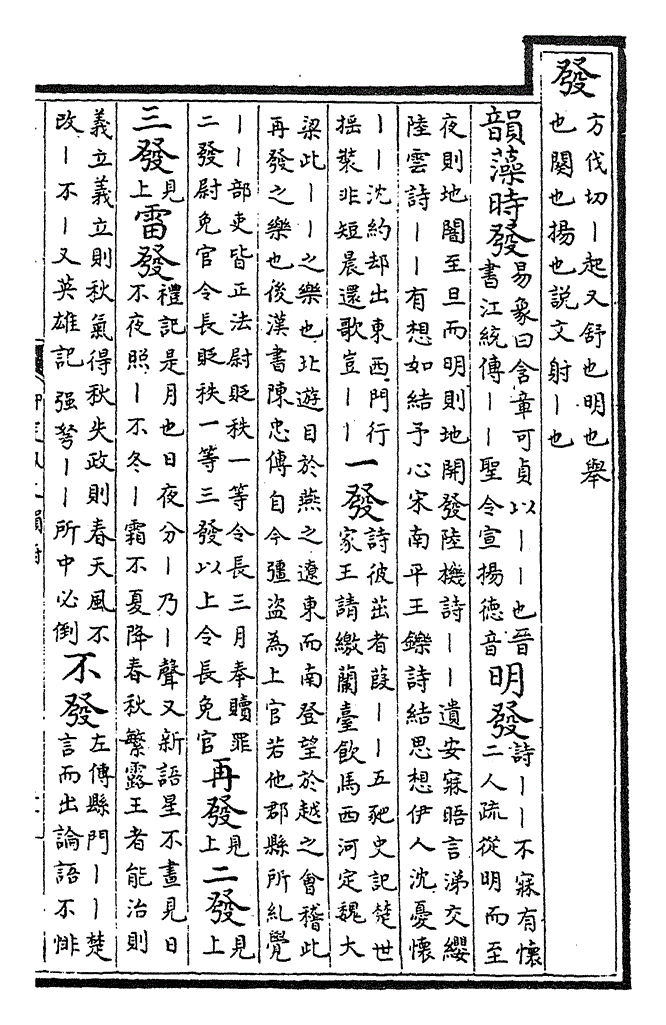 發方伐切〡起又舒也明也舉
也闓也揚也說文射〡也
韻藻時發易象曰含章可貞以〡〡也晉
書江統傳〡〡聖令宣揚德音
明發詩〡〡不寐有懷
二人疏從明而至
夜則地闇至旦而明則地開發陸機詩〡〡遺安寐晤言涕交纓
陸雲詩〡〡有想如結予心宋南平王鑠詩結思想伊人沈憂懷
〡〡沈約却出東西門行
揺裝非短晨還歌豈〡〡
一發詩彼茁者葭〡〡五豝史記楚世
家王請繳蘭臺飲馬西河定魏大
梁此〡〡之樂也北遊目於燕之遼東而南登望於越之會稽此
再發之樂也後漢書陳忠傳自今彊盜為上官若他郡縣所糺覺
〡〡部吏皆正法尉貶秩一等令長三月奉贖罪
二發尉免官令長貶秩一等三發以上令長免官
再發見上
二發見上
三發見上
雷發禮記是月也日夜分〡乃〡聲又新語星不晝見日
不夜照〡不冬〡霜不夏降春秋繁露王者能治則
義立義立則秋氣得秋失政則春天風不
改〡不〡又英雄記 强弩〡〡所中必倒
不發左傳縣門〡〡楚
言而出論語不悱